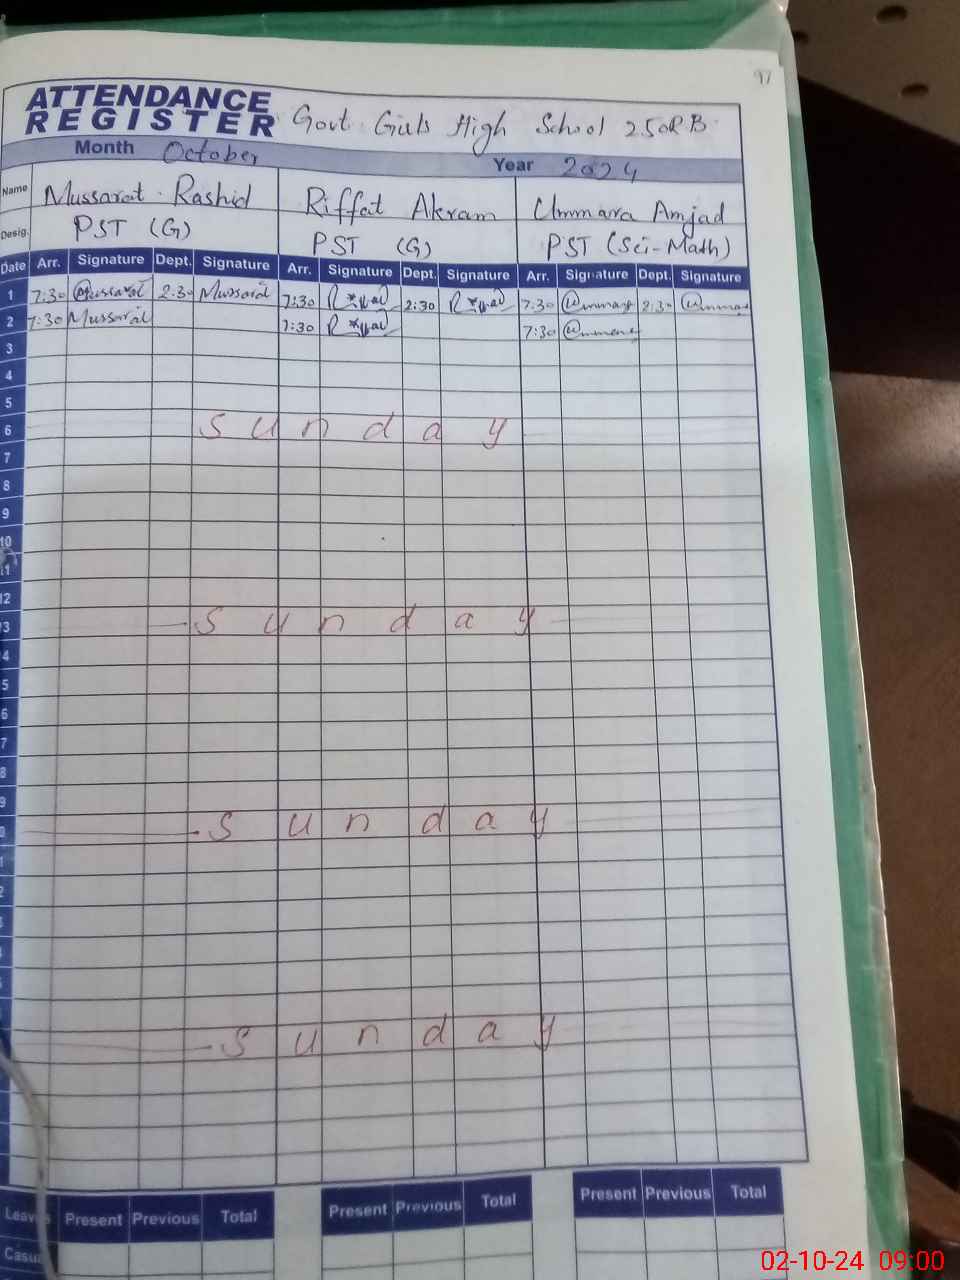 97
ATTENDANCE REGISTER Govt Girls High School 250RB
Month October Year 2024
Name Mussarat Rashid Riffat Akram Ummara Amjad
Desig. PST (G) PST (G) PST (Sci-Math)
Date Arr. Signature Dept. Signature Arr. Signature Dept. Signature Arr. Signature Dept. Signature
1 7:30 Mussarat 2:30 Mussarat 7:30 2:30 7:30 2:30
2 7:30 Mussarat 7:30 7:30
3
4
5
6 Sunday
7
8
9
10
11
12
3 Sunday
4
5
6
7
8
9
0 Sunday
1
2
Sunday
Leaves Present Previous Total Present Previous Total Present Previous Total
Casual
02-10-24 09:00